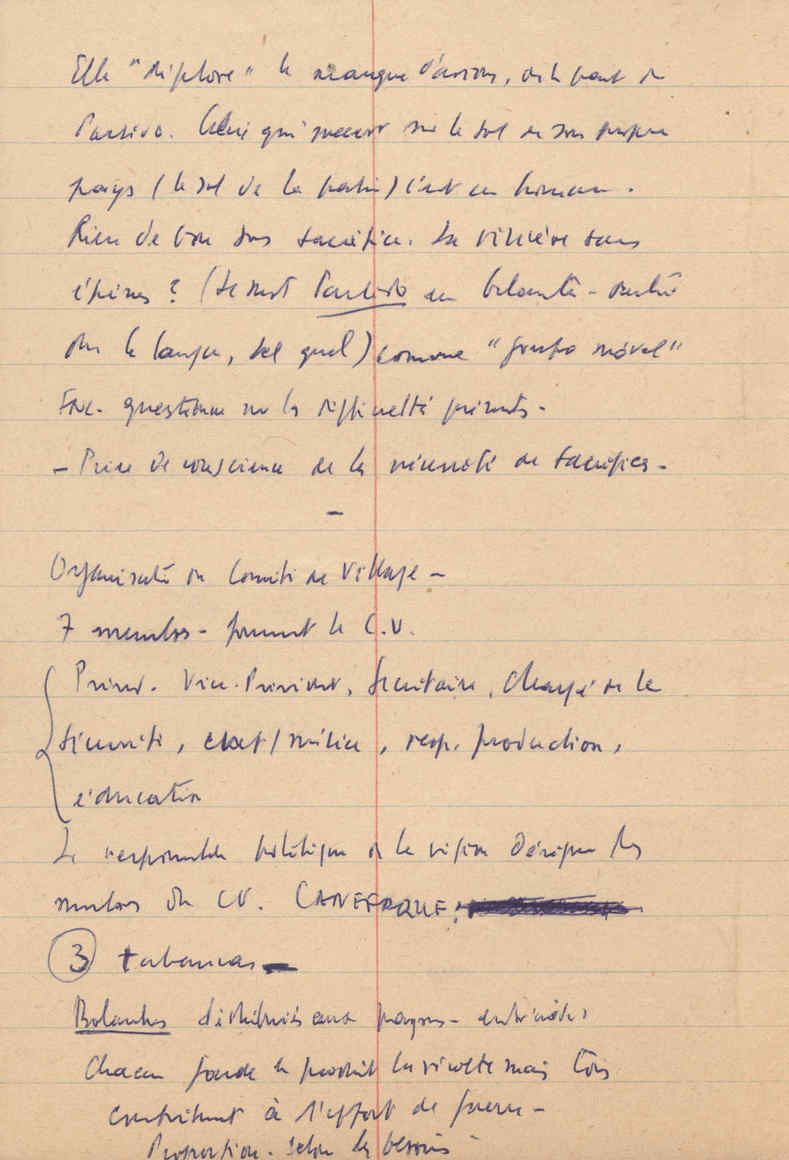 Elle "déplore" le manque d'avions, de la part de
Partido. Celui qui meurt sur le sol de son propre
pays (le sol de la patrie) c'est un homme.
Rien de bon sans sacrifice. La rizière sans
épines ? (Le mot Partido en balante - entré
dans la langue, tel quel) comme "grupo móvel"
questionne sur les difficultés présentes -
- Prise de conscience de la nécessité de sacrifices -
-
Organisation du Comité de Village -
7 membres - forment le C.V.
Présid. Vice-Président, Secrétaire, chargé de la
Sécurité, chef/milice, resp. production,
éducation
Le responsable politique de la région désigne les
membres du CV. CANEFAQUE
③ tabancas -
Balantes distribués aux paysans -
Chacun garde le produit la récolte mais tous
contribuent à l'effort de guerre -
Proportion - selon les besoins -